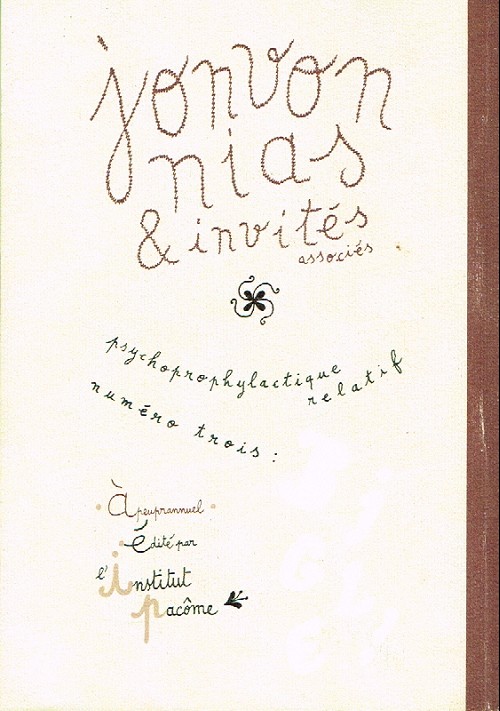 jonvon
nias
& invités
associés
psychoprophylactique
relatif
numéro trois :
àpeuprannuel
édité par
l'institut
pacôme